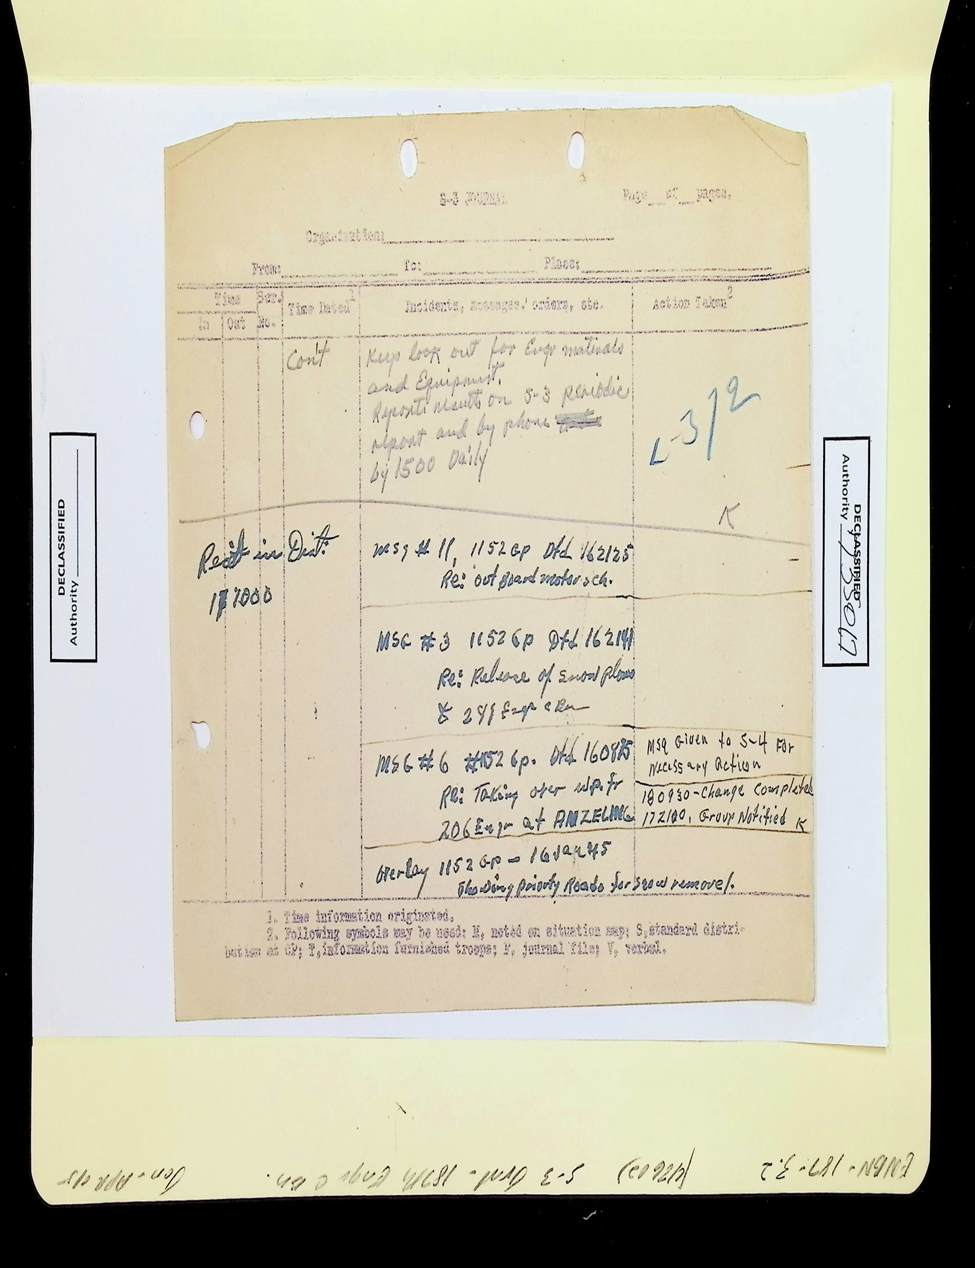 S-3 JOURNAL
Page__of__pages.
Organization:
From: To: Place:
Time Ser. Time Dated1 Incidents, messages, orders, etc. Action Taken2
In Out No.
Con't Keep look out for Engr matierals
and Equipment.
Report results on S-3 Periodic
report and by phone
by 1500 Daily
L-3/2
K
in Dist.
Msg # 11, 1152 Gp Dtd 162125
Re: out board motor sch.
MSG #3 1152 Gp Dtd 162141
Re: Release of snow plows
Engr
MSG #6 1152 Gp. Dtd
Re: Taking over w.p. fr
206 Engr at ANZELING
Msg Given to S-4 For
Necessary Action
180930-Change Completed
172100, Group Notified K
Overlay 1152 Gp - 16 Jan 45
Showing Priority Roads for snow removal.
1. Time information originated.
2. Following symbols may be used: M, noted on situation map; S, standard distri-
bution at CP; T, information furnished troops; F, journal file; V, verbal.
DECLASSIFIED
Authority
DECLASSIFIED
Authority
ENBN-187-3.2 S-3 Jrnl- 187th Engr C Bn. Jan-Apr 45